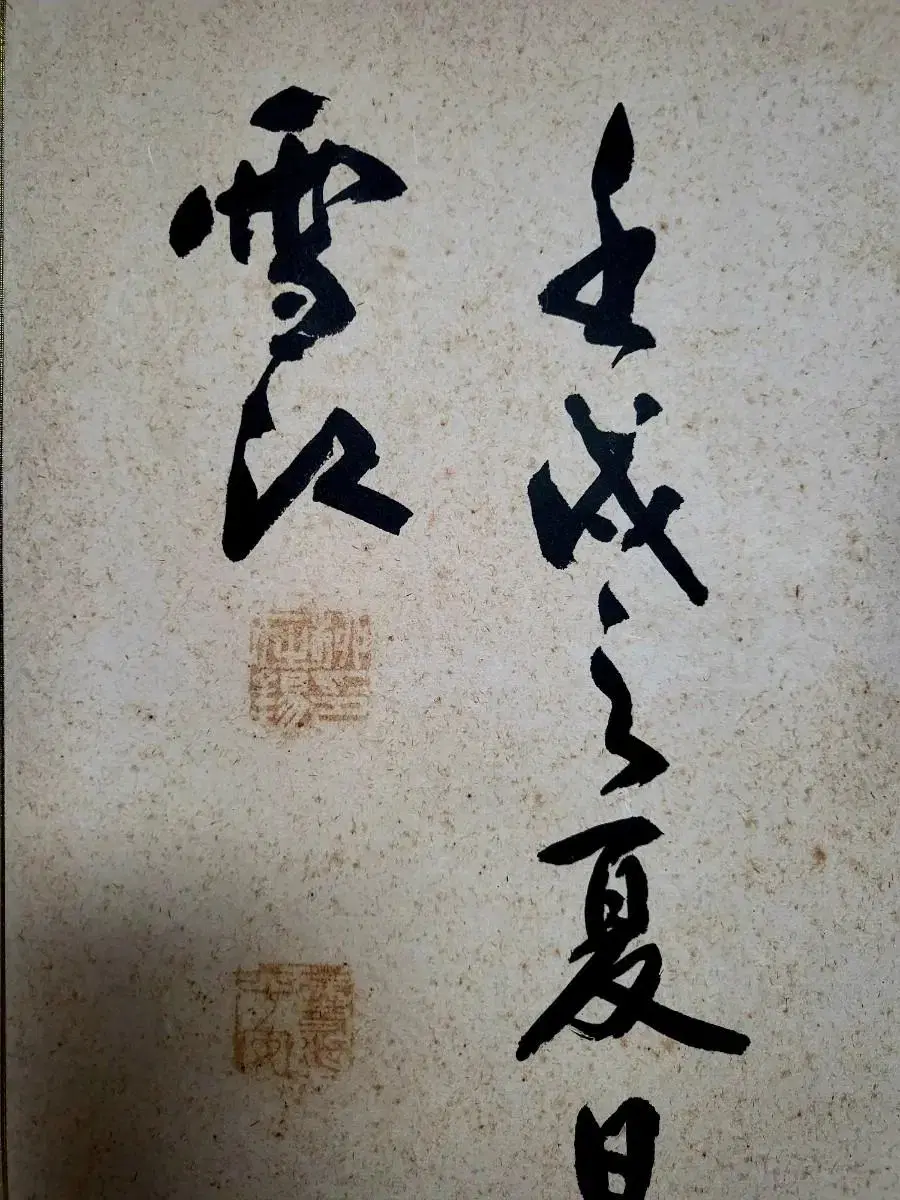 壬戌之夏日
雪江